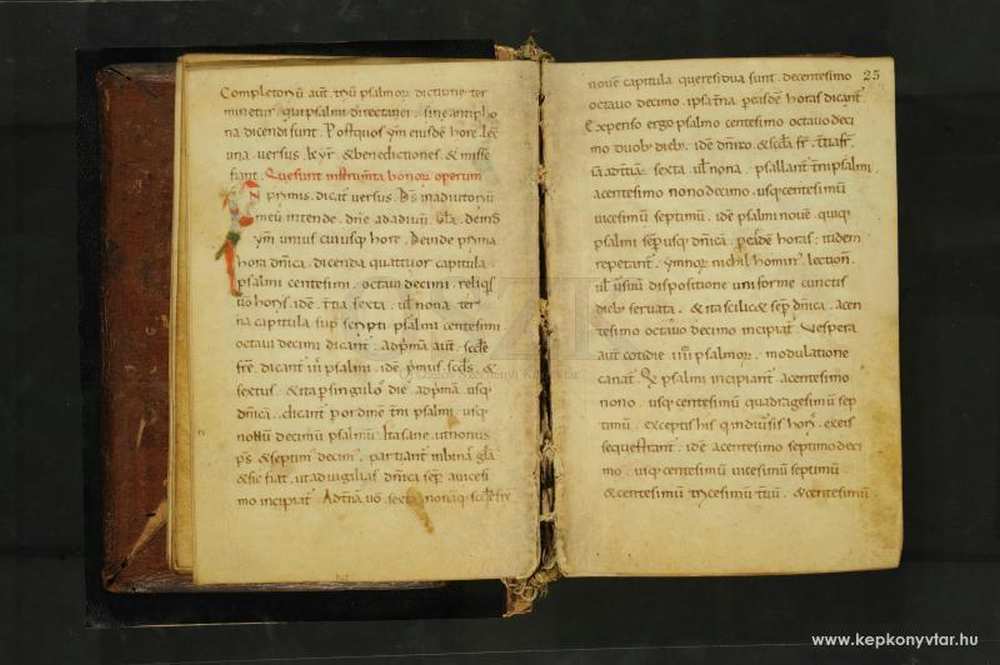 Completoriū aut̄ triū psalmoꝝ dictione ter
minetur. qui psalmi directanei. sine antipho
na dicendi sunt. Post quos ym̄ eiusdē horę. lec̄
una. versus. kyr̄. & benedictiones. & missę
fiant. Que sunt instrum̄ta bonoꝝ operum
primis. dicat̄ versus. D̄s in adiutoriū
meū intende. dn̄e ad adiuu. Gl̄a. deinđ
ym̄ unius cuiusq hore. Deinde prima
hora dn̄ica. dicenda quattuor capitula
psalmi centesimi. octaui decimi. reliqs̄
uō horis idē. t̄tia sexta. ul̄ nona. ter
na capitula sup̄ scripti psalmi centesimi
octaui decimi dicant̄. ad p̄mā aut̄. sc̄dę
frę. dicant̄ iii psalmi. idē p̄mus. sc̄ds. &
sextus. & ita p singulos diē ad p̄mā. usq
dn̄icā. dicant̄ per ordinē t̄ni psalmi. usq
nonū decimū psalmū. Ita sane. ut nonus
p̄s. & septim decim̄. partiant̄ in binas gl̄a
& sic fiat. ut ad uigilias dn̄ica sep̄. a uicesi
mo incipiat̄. Ad t̄tiā. uō sextā nonāq sc̄dę frę
25
nouē capitula que residua sunt. de centesimo
octauo decimo. ipsa t̄na. p easdē horas dicant̄
Expenso ergo psalmo centesimo octauo deci
mo. duob; dieb;. idē dn̄ico. & sc̄da fr̄. t̄tia fr̄.
iā ad t̄tiā. sexta. ul̄ nona. psallant̄ t̄ni psalmi
a centesimo nono decimo. usq centesimū
uicesimū septimū. idē psalmi nouē. quiq
psalmi sēp usq dn̄icā. p easdē horas. itidem
repetant̄. ymnoꝝ nichilhominꝰ. lection̄.
ul̄ uersuū dispositione uniforme cunctis
dieb; seruata. & ita scilic& sēp dn̄ica. a cen
tesimo octauo decimo incipiat̄. Vespera
aut̄ cotidie iiii psalmoꝝ. modulatione
canat̄. Q psalmi incipiant̄ a centesimo
nono. usq centesimū quadragesimū sep
timū. exceptis his q in diuersis horis. ex eis
sequestrant̄. idē a centesimo septimo deci
mo. usq centesimū uicesimū septimū.
& centesimū tricesimū t̄tiū. & centesimū
www.kepkonyvtar.hu